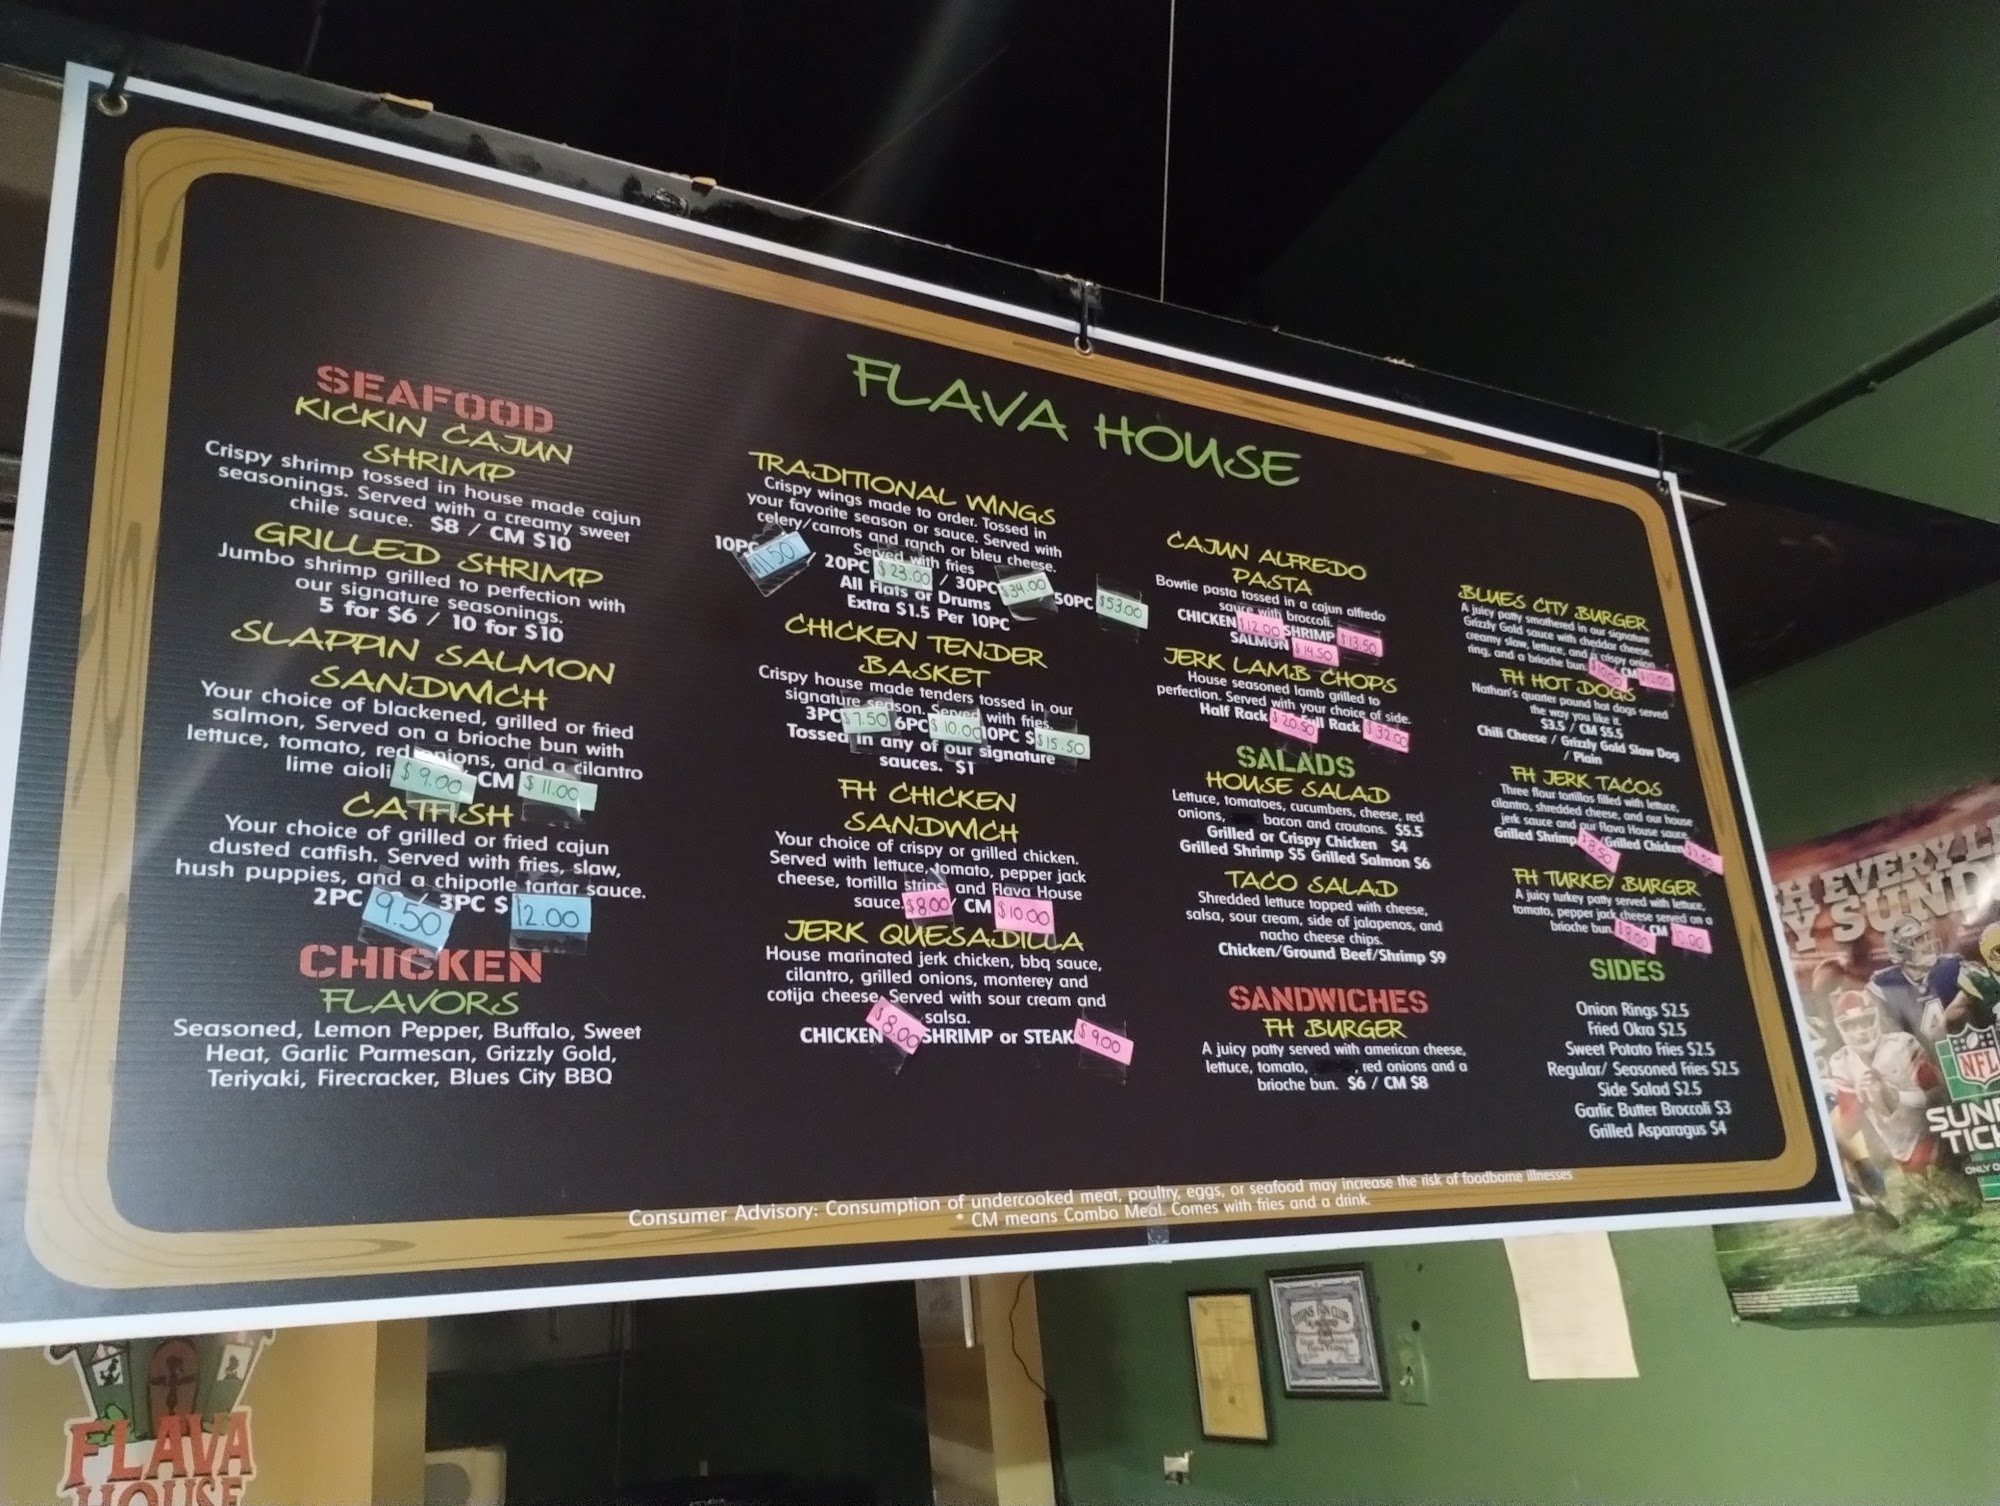 FLAVA HOUSE
SEAFOOD
KICKIN CAJUN
SHRIMP
Crispy shrimp tossed in house made cajun
seasonings. Served with a creamy sweet
chile sauce. $8 / CM $10
GRILLED SHRIMP
Jumbo shrimp grilled to perfection with
our signature seasonings.
5 for $6 / 10 for $10
SLAPPIN SALMON
SANDWICH
Your choice of blackened, grilled or fried
salmon, Served on a brioche bun with
lettuce, tomato, red onions, and a cilantro
lime aioli $9.00 CM $11.00
CATFISH
Your choice of grilled or fried cajun
dusted catfish. Served with fries, slaw,
hush puppies, and a chipotle tartar sauce.
2PC 9.50 / 3PC $ 12.00
CHICKEN
FLAVORS
Seasoned, Lemon Pepper, Buffalo, Sweet
Heat, Garlic Parmesan, Grizzly Gold,
Teriyaki, Firecracker, Blues City BBQ
TRADITIONAL WINGS
Crispy wings made to order. Tossed in
your favorite season or sauce. Served with
celery/carrots and ranch or bleu cheese.
Served with fries
10PC / 20PC $23.00 / 30PC $34.00 50PC $53.00
All Flats or Drums
Extra $1.5 Per 10PC
CHICKEN TENDER
BASKET
Crispy house made tenders tossed in our
signature season. Served with fries
3PC $7.50 6PC $10.00 10PC $ $15.50
Tossed in any of our signature
sauces. $1
FH CHICKEN
SANDWICH
Your choice of crispy or grilled chicken.
Served with lettuce, tomato, pepper jack
cheese, tortilla strips and Flava House
sauce. $8.00 / CM $10.00
JERK QUESADILLA
House marinated jerk chicken, bbq sauce,
cilantro, grilled onions, monterey and
cotija cheese. Served with sour cream and
salsa.
CHICKEN $8.00 SHRIMP or STEAK $9.00
CAJUN ALFREDO
PASTA
Bowtie pasta tossed in a cajun alfredo
sauce with broccoli.
CHICKEN $12.00 SHRIMP $13.50
SALMON $14.50
JERK LAMB CHOPS
House seasoned lamb grilled to
perfection. Served with your choice of side.
Half Rack $20.50 Rack $32.00
SALADS
HOUSE SALAD
Lettuce, tomatoes, cucumbers, cheese, red
onions, bacon and croutons. $5.5
Grilled or Crispy Chicken $4
Grilled Shrimp $5 Grilled Salmon $6
TACO SALAD
Shredded lettuce topped with cheese,
salsa, sour cream, side of jalapenos, and
nacho cheese chips.
Chicken/Ground Beef/Shrimp $9
SANDWICHES
FH BURGER
A juicy patty served with american cheese,
lettuce, tomato, , red onions and a
brioche bun. $6 / CM $8
BLUES CITY BURGER
A juicy patty smothered in our signature
Grizzly Gold sauce with cheddar cheese,
creamy slaw, lettuce, and a crispy onion
ring, and a brioche bun. $10.00 CM $12.00
FH HOT DOGS
Nathan's quarter pound hot dogs served
the way you like it.
$3.5 / CM $5.5
Chili Cheese / Grizzly Gold Slaw Dog
/ Plain
FH JERK TACOS
Three flour tortillas filled with lettuce,
cilantro, shredded cheese, and our house
jerk sauce and our Flava House sauce.
Grilled Shrimp $8.50 /Grilled Chicken
FH TURKEY BURGER
A juicy turkey patty served with lettuce,
tomato, pepper jack cheese served on a
brioche bun. $8.00 CM 10.00
SIDES
Onion Rings $2.5
Fried Okra $2.5
Sweet Potato Fries $2.5
Regular/ Seasoned Fries $2.5
Side Salad $2.5
Garlic Butter Broccoli $3
Grilled Asparagus $4
Consumer Advisory: Consumption of undercooked meat, poultry, eggs, or seafood may increase the risk of foodborne illnesses
* CM means Combo Meal. Comes with fries and a drink.
EVERY
SUND
NFL
SUN
TIC
ONLY
FLAVA
HOUSE